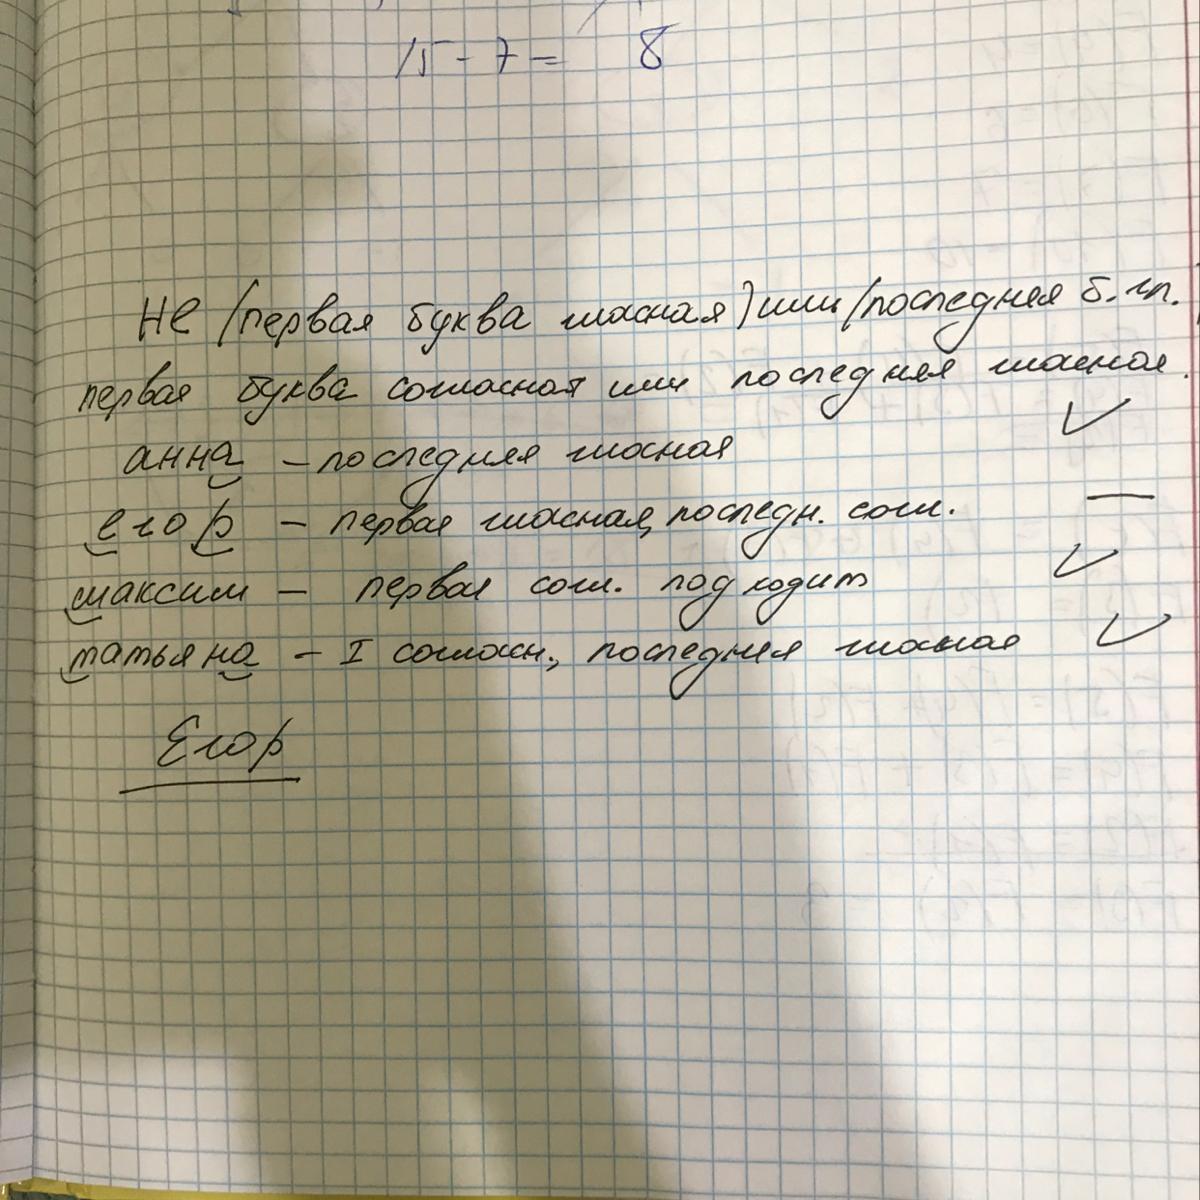 15 - 7 = 8
Не (первая буква гласная) или (последняя б. гл.)
первая буква согласная или последняя гласная.
анна - последняя гласная ✓
егор - первая гласная, последн. согл. —
максим - первая согл. подходит ✓
татьяна - I согласн., последняя гласная ✓
Егор